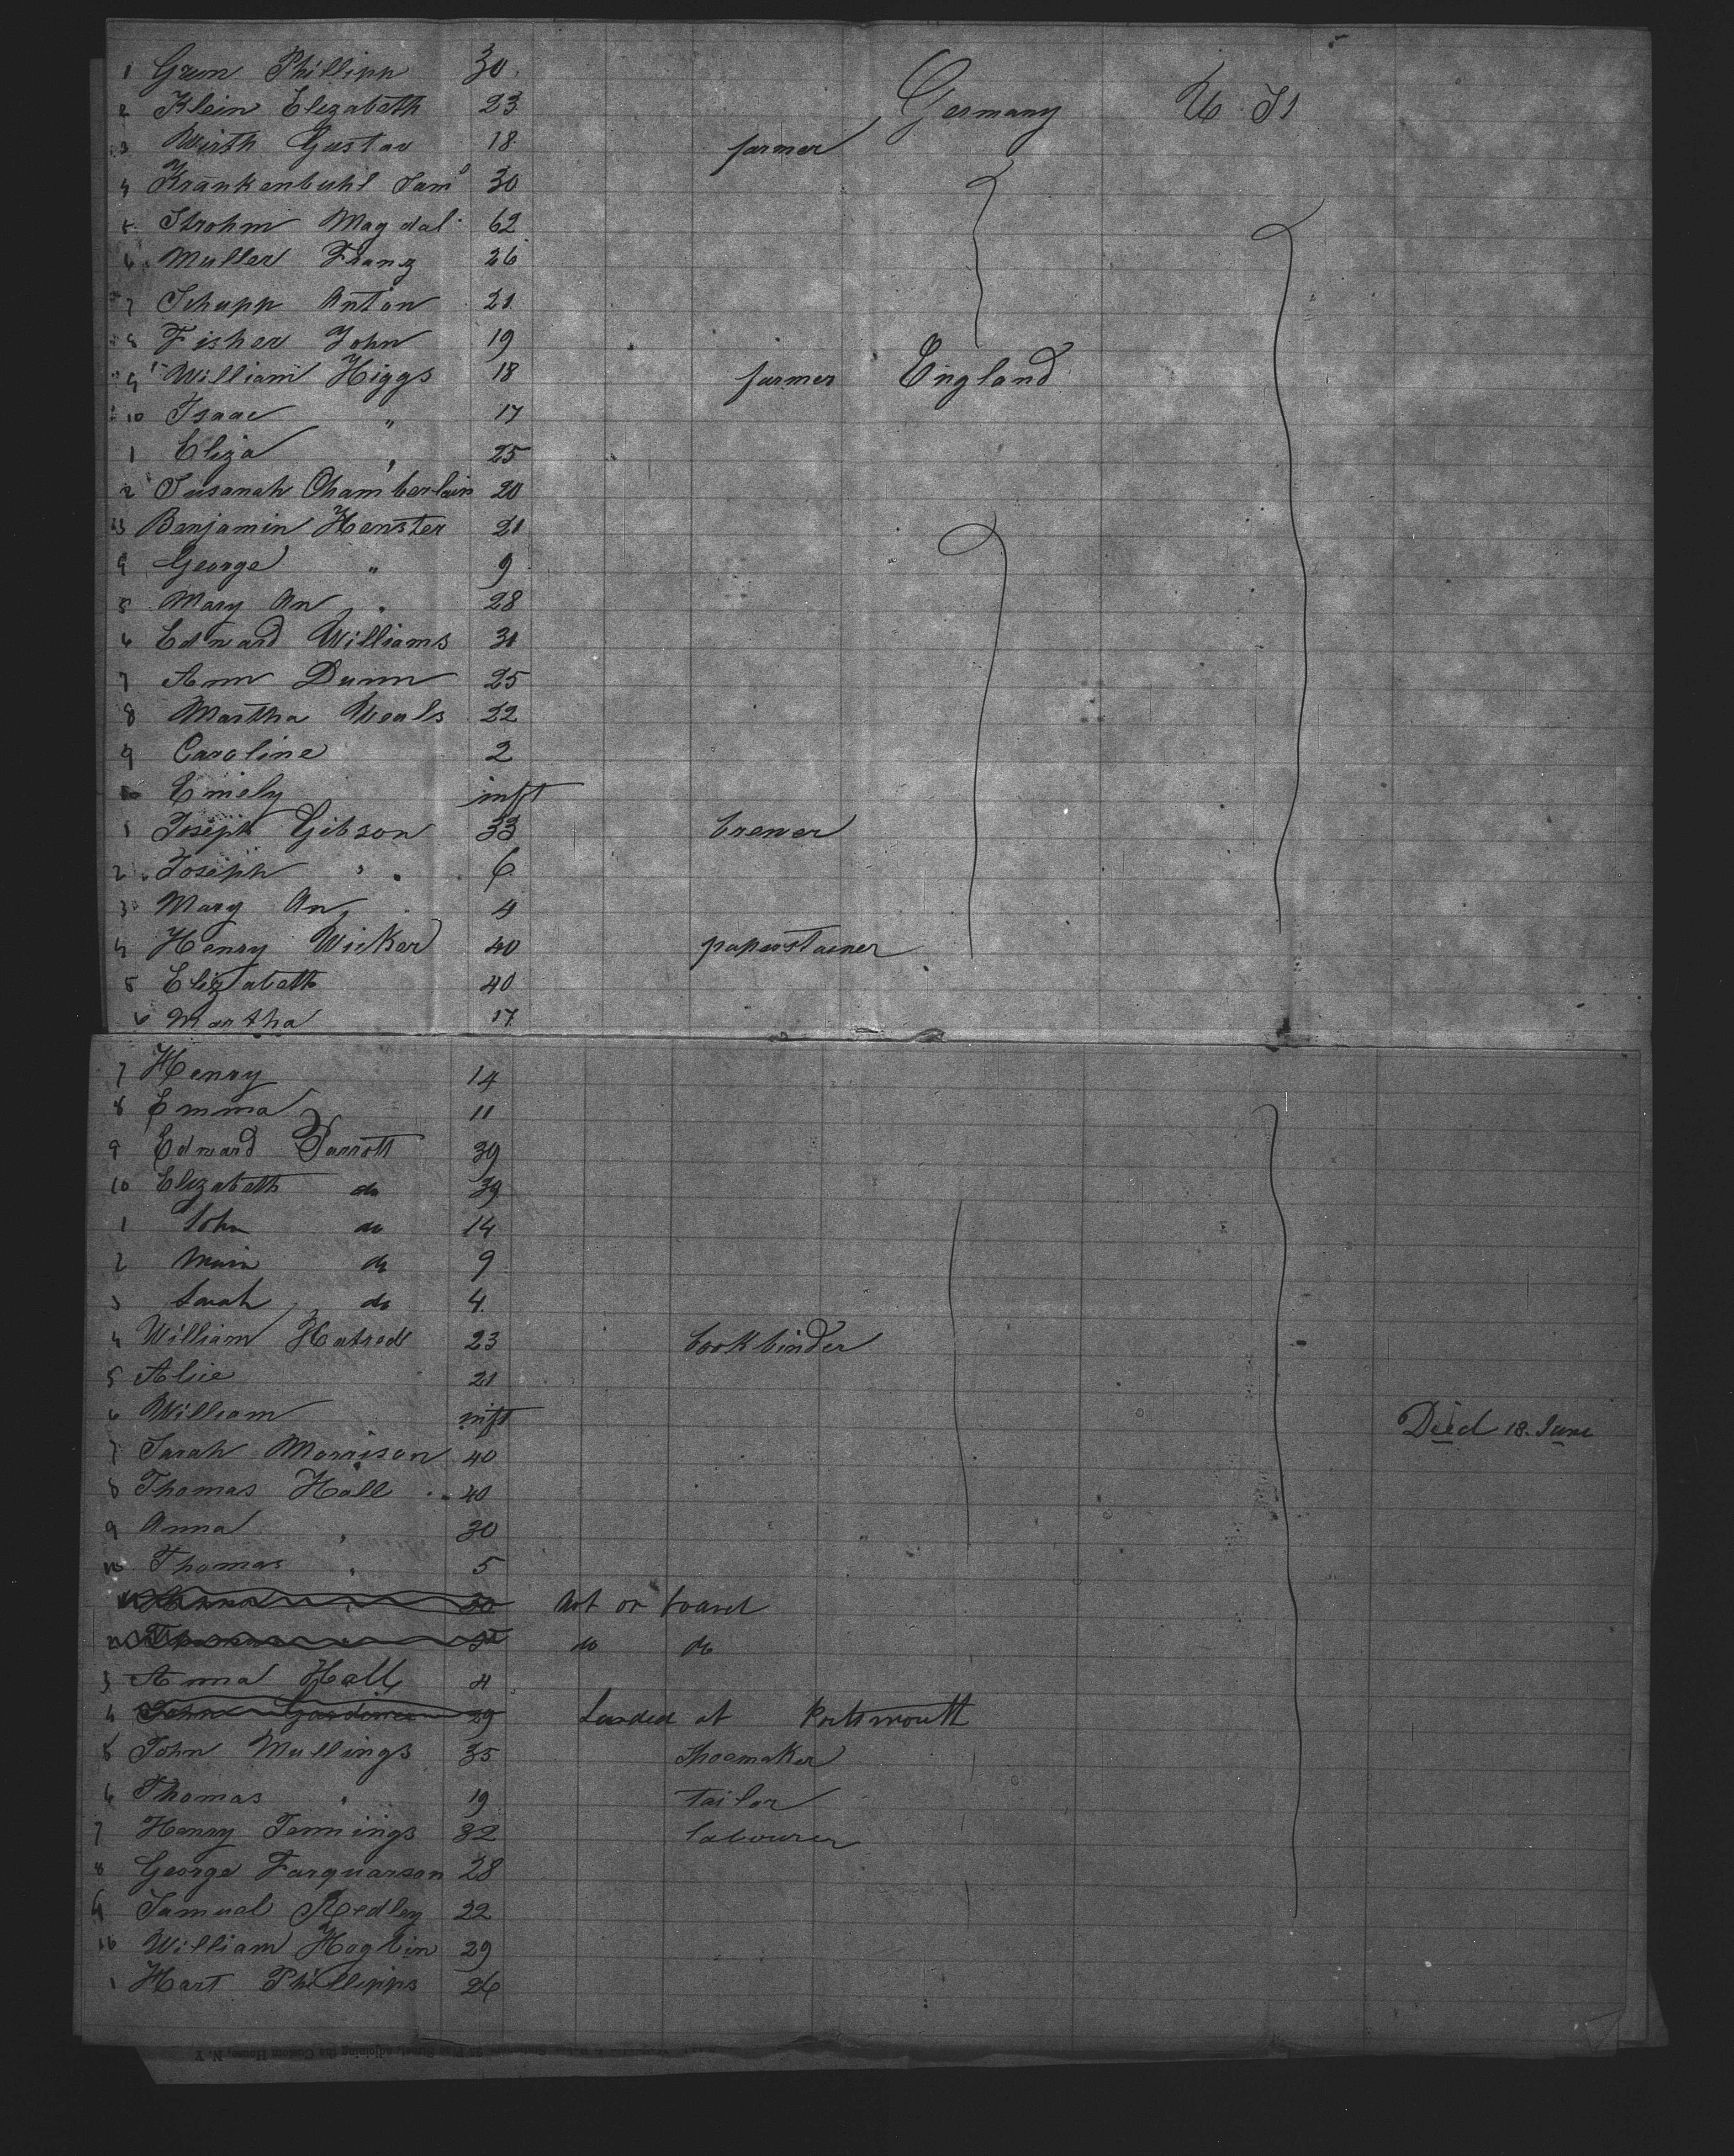 1 Grun Phillipp 30 Germany U. St
2 Klein Elizabeth 23
3 Wirth Gustav 18 farmer
4 Krankenbuhl Sam 30
5 Strohm Magdal. 62
6 Muller Franz 26
7 Schupp Anton 21
8 Fisher John 19
9 William Higgs 18 farmer England
10 Isaac " 17
1 Eliza " 25
2 Susanah Chamberlain 20
3 Benjamin Henster 21
4 George " 9
5 Mary An " 28
6 Edward Williams 31
7 Ann Dunn 25
8 Martha Weals 22
9 Caroline 2
10 Emely inft
1 Joseph Gibson 33 brewer
2 Joseph " 6
3 Mary An, 4
4 Henry Wicker 40 paperstainer
5 Elizabeth 40
6 Martha 17
7 Henry 14
8 Emma 11
9 Edward Parrott 39
10 Elizabeth do 39
1 John do 14
2 do 9
3 Sarah do 4
4 William Hatred 23 bookbinder
5 Alice 21
6 William inft Died 18. June
7 Sarah Morrison 40
8 Thomas Hall 40
9 Anna " 30
10 Thomas " 5
30 Not on board
do do
3 Anna Hall 4
4 John Gardiner 29 Landed at Portsmouth
5 John Mullings 35 Shoemaker
6 Thomas " 19 Tailor
7 Henry Jennings 32 labourer
8 George Farquarson 28
9 Samuel Redley 22
10 William Hoglin 29
1 Hart Phillipps 26
adjoining the Custom House, N. Y.